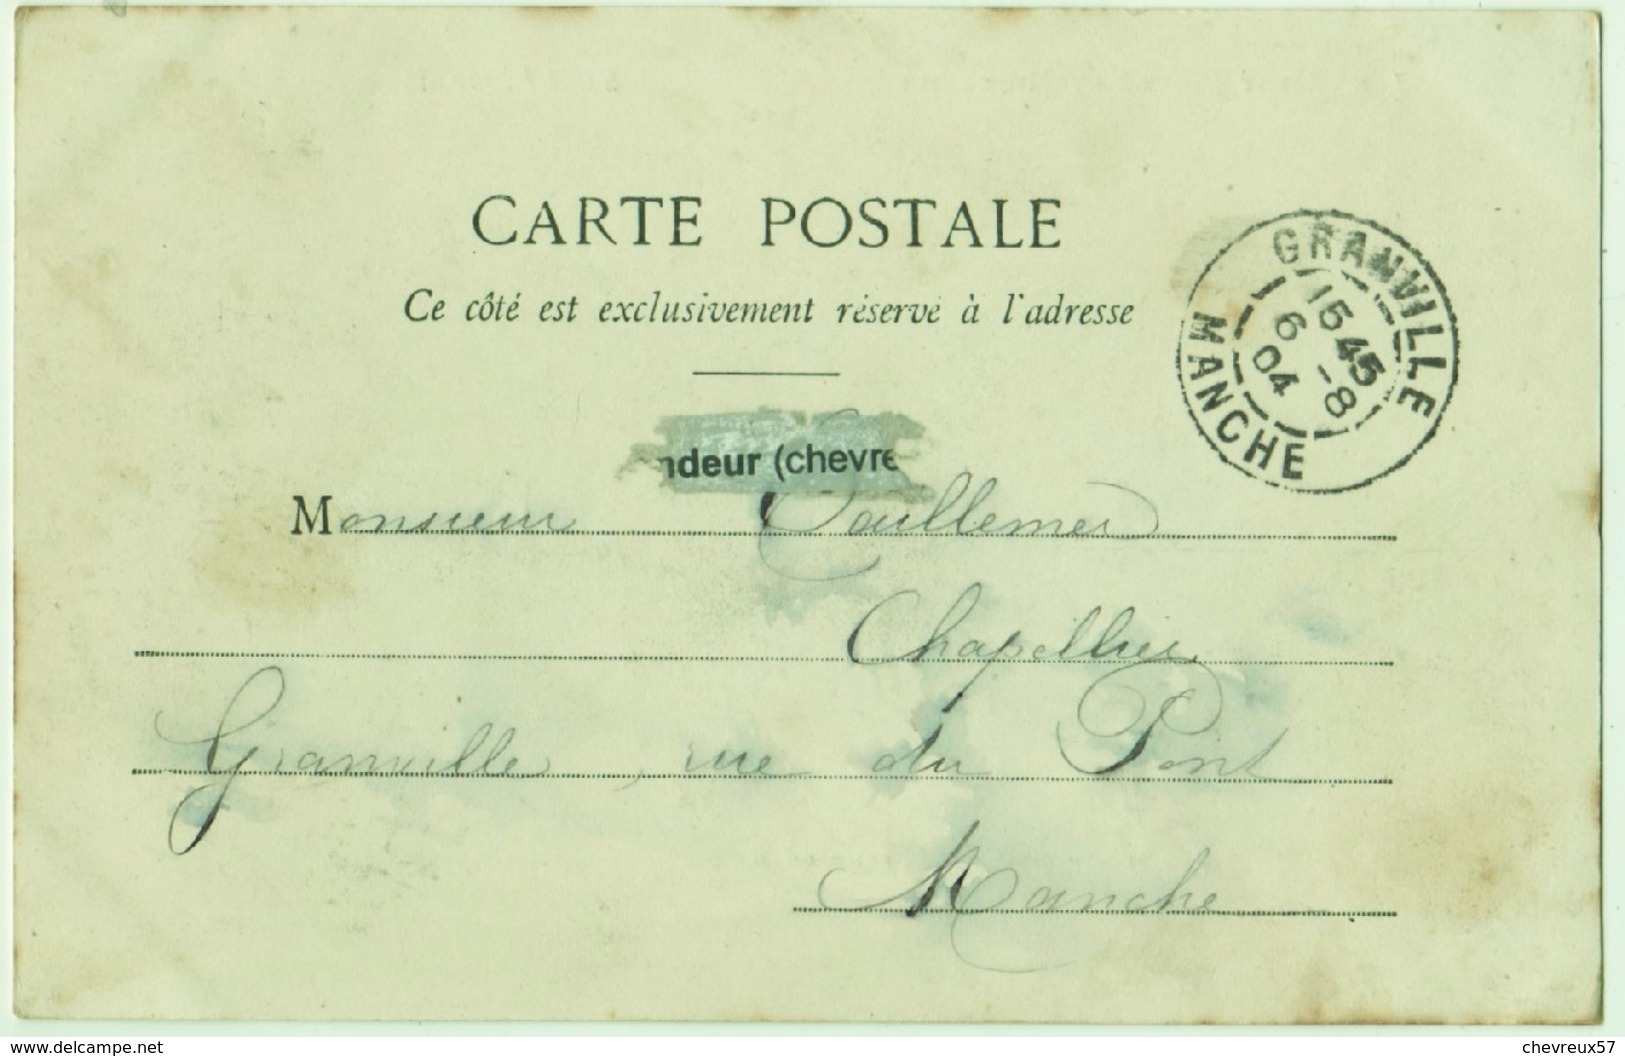 CARTE POSTALE
Ce côté est exclusivement réservé à l'adresse
GRANVILLE
15 45
6 - 8
04
MANCHE
ndeur (chevre
Monsieur Caillemer
Chapellier
Granville, rue du Pont
Manche
www.delcampe.net
chevreux57